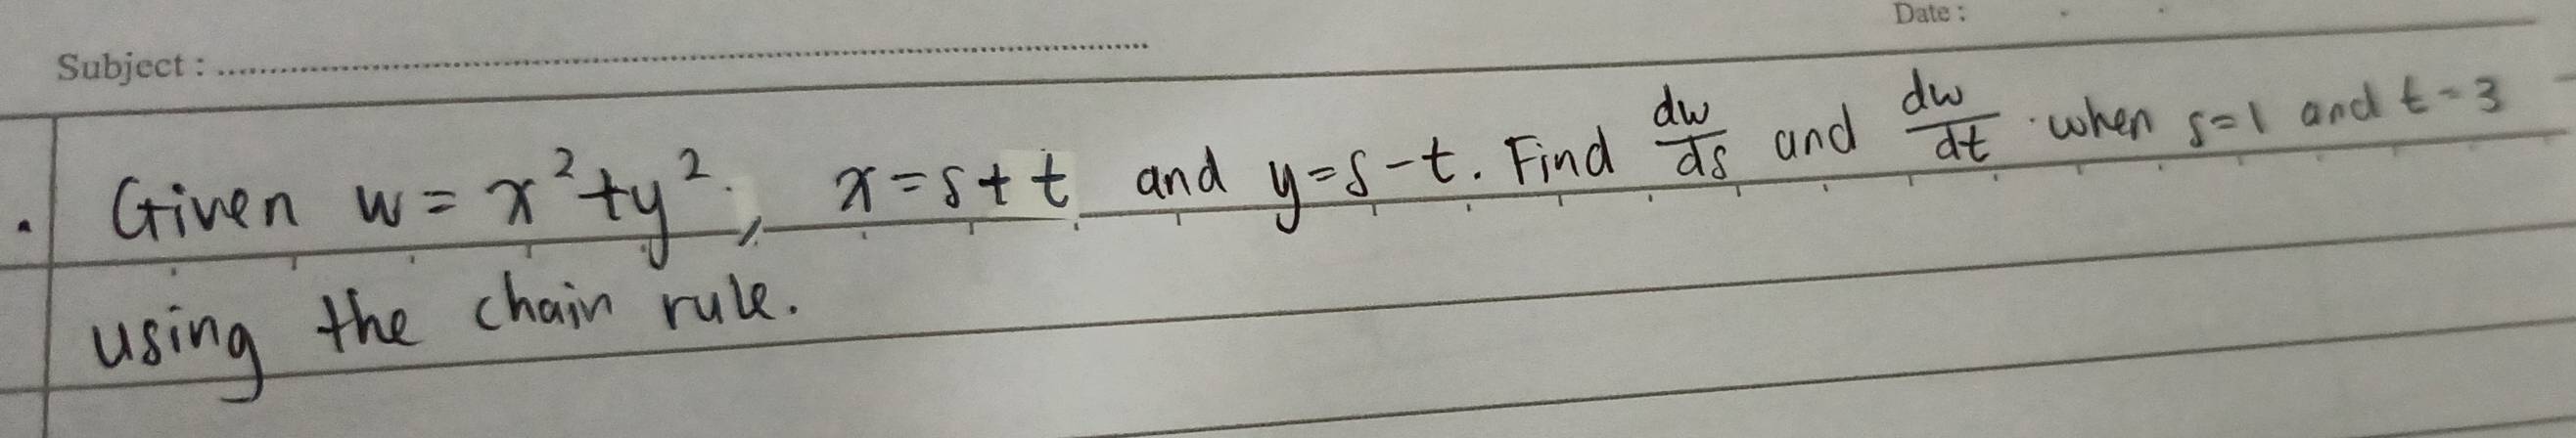 Date :
Subject :
Given w = x² + y², x = s + t and y = s - t. Find dw/ds and dw/dt when s = 1 and t = 3
using the chain rule.